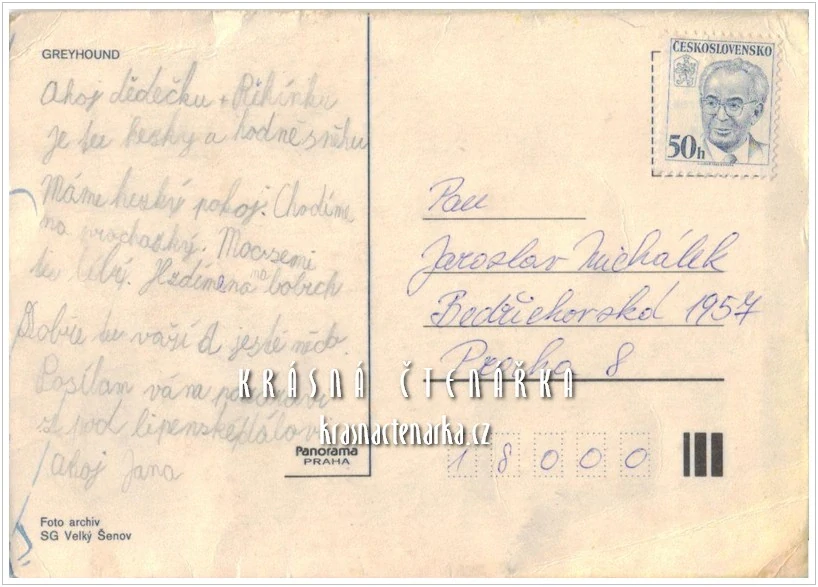 GREYHOUND
Ahoj dědečku + Rikinku
je tu hesky a hodně sněhu
Máme heský pokoj. Chodíme
na procházky. Moc se mi
tu líbí. na bobech
Dobře tu vaří a ješte něco.
Posílám vám
z pod
Ahoj Jana
Foto archiv
SG Velký Šenov
Panorama
PRAHA
ČESKOSLOVENSKO
50h
Pan
Jaroslav Michálek
Bedřichovská 1957
Praha 8
18000
KRÁSNÁ ČTENÁŘKA
krasnactenarka.cz